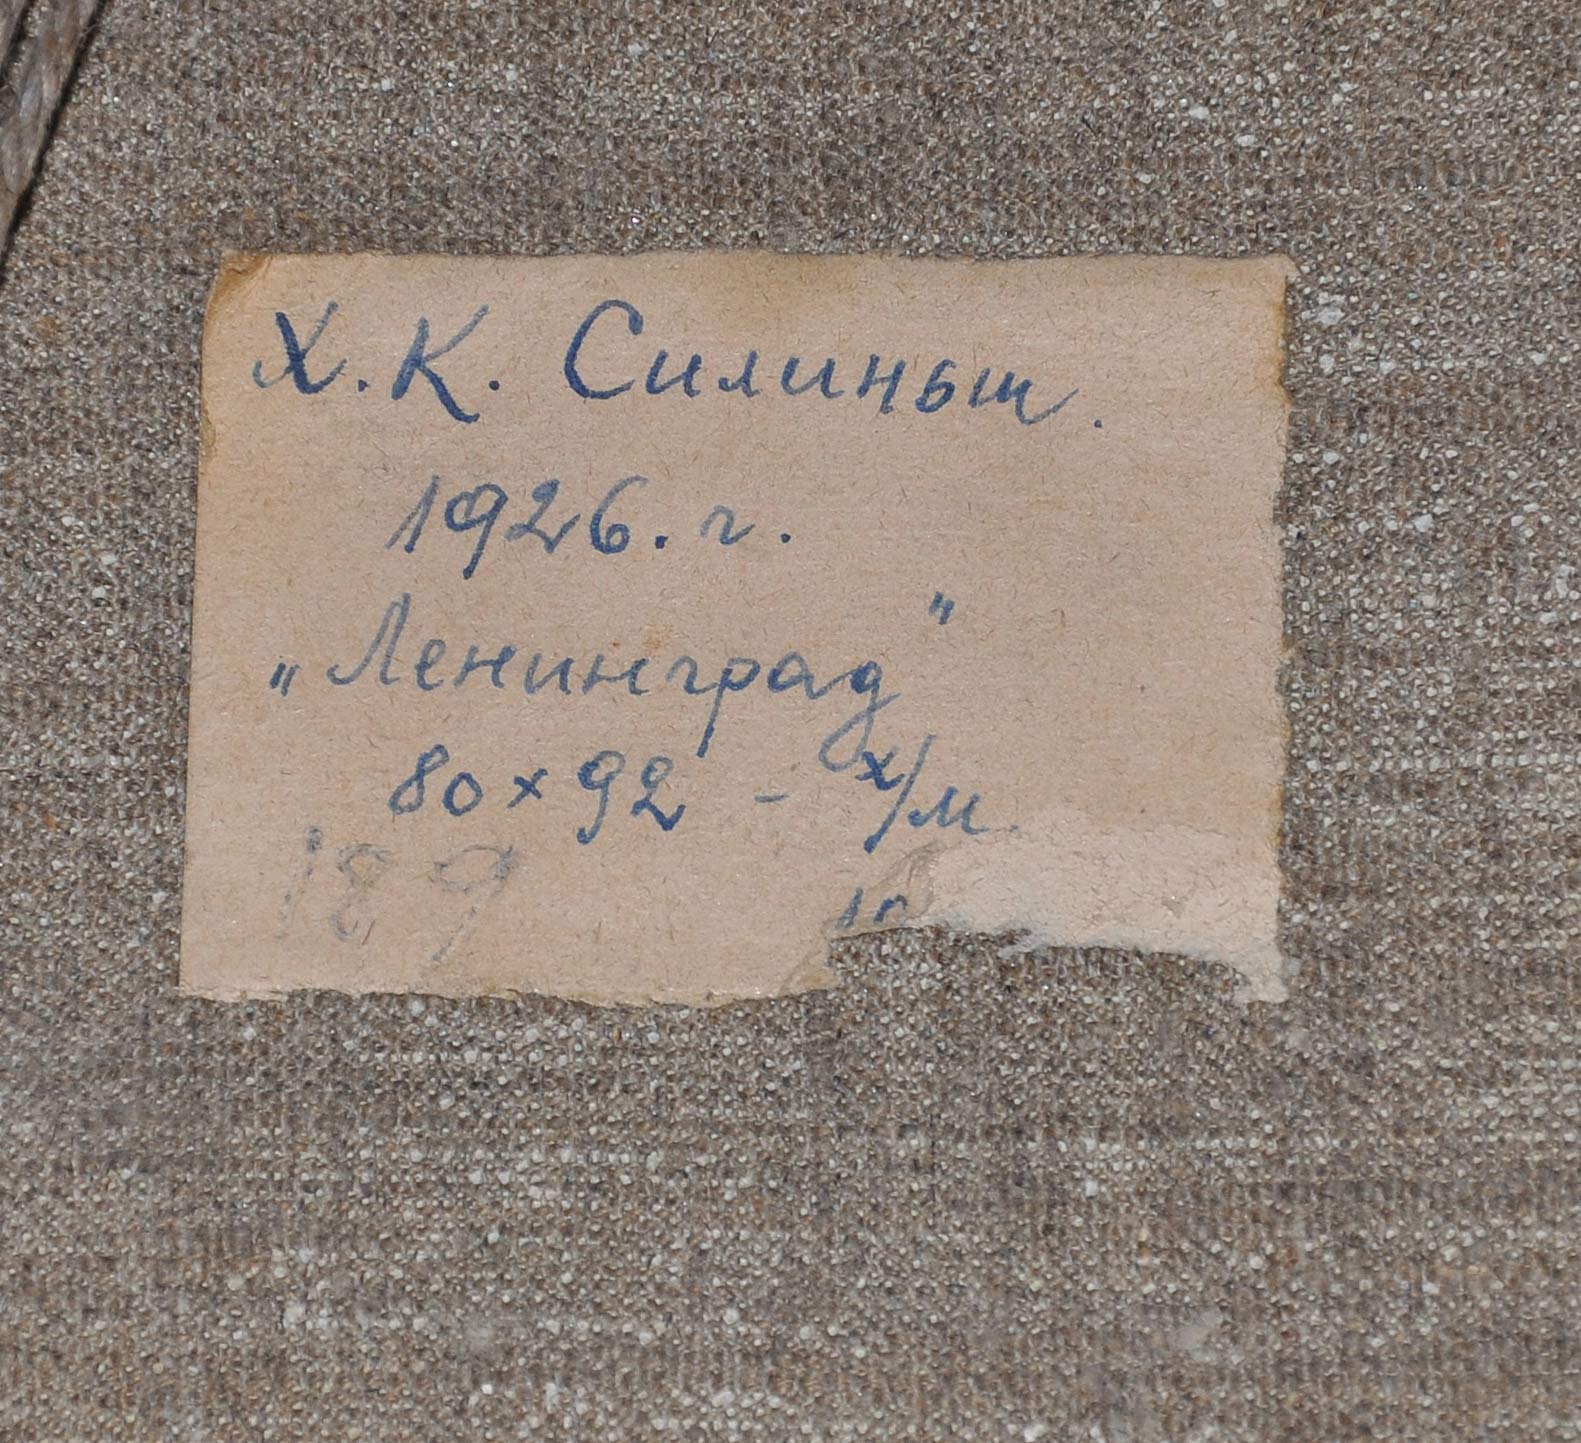 Х. К. Силиньш.
1926. г.
„Ленинград"
80 x 92 - х/м.
189